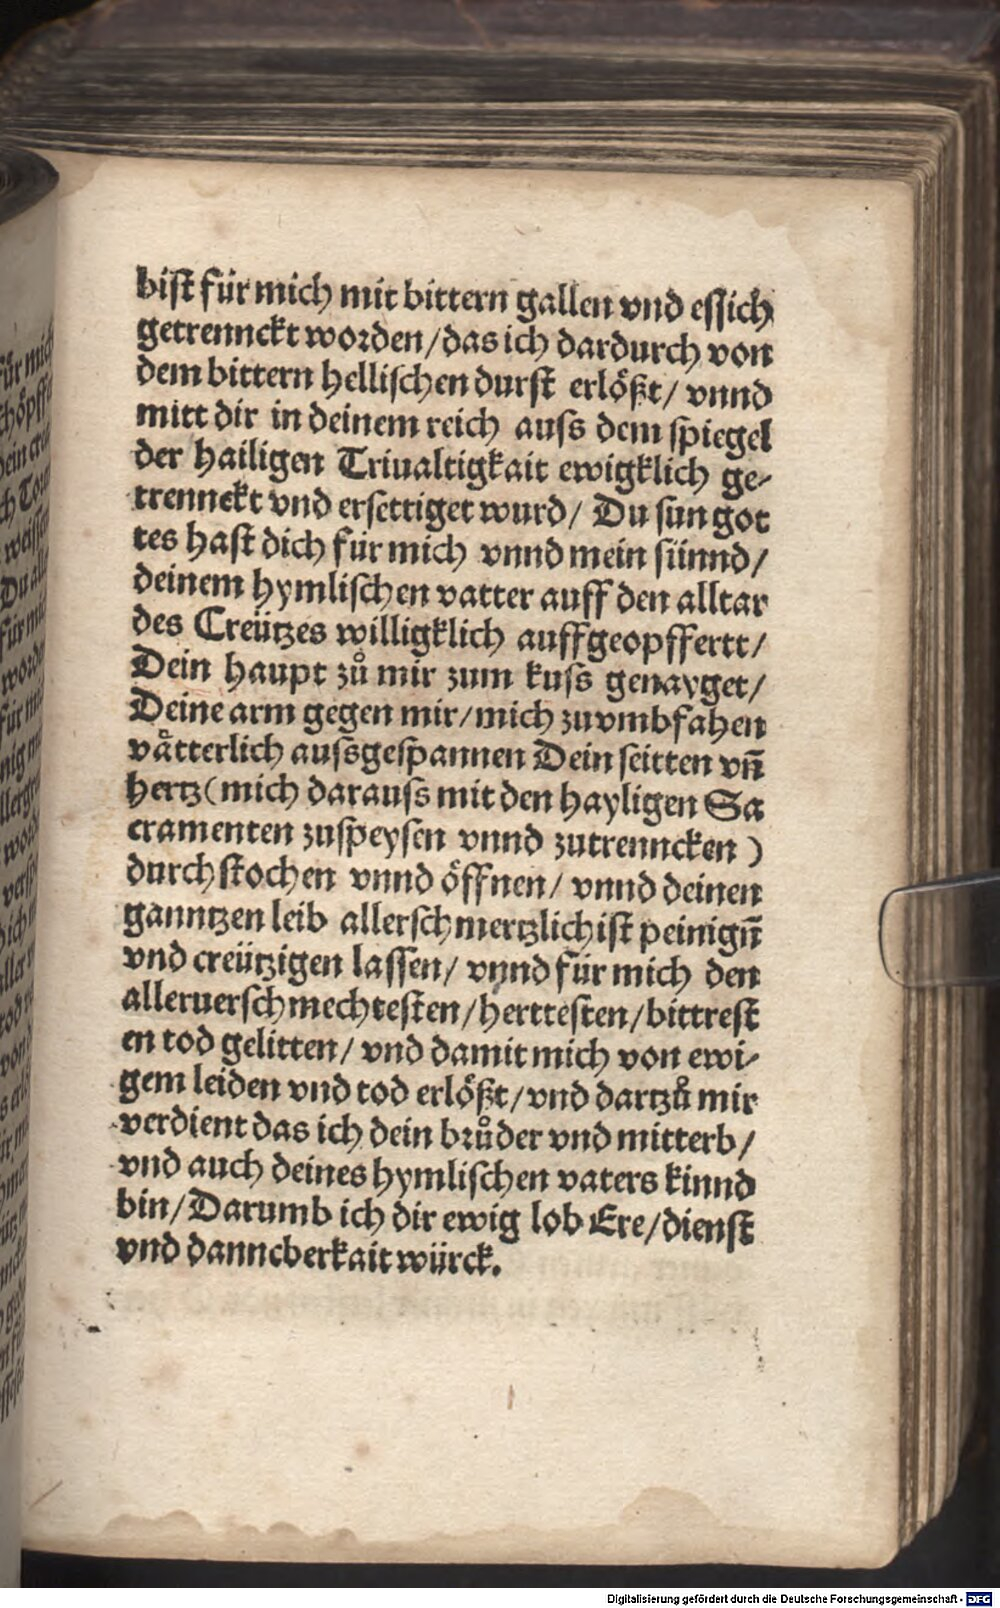 bist für mich mit bittern gallen vnd essich
getrennckt worden/das ich dardurch von
dem bittern hellischen durst erlößt/ vnnd
mitt dir in deinem reich auss dem spiegel
der hailigen Triualtigkait ewigklich ge-
trennckt vnd ersettiget wurd/ Du sun got
tes hast dich für mich vnnd mein sünnd/
deinem hymlischen vatter auff den alltar
des Creützes willigklich auffgeopffertt/
Dein haupt zů mir zum kuss genayget/
Deine arm gegen mir/mich zuvmbfahen
våtterlich aussgespannen Dein seitten vn̄
hertz(mich darauss mit den hayligen Sa
cramenten zuspeysen vnnd zutrenncken)
durchstochen vnnd öffnen/ vnnd deinen
ganntzen leib allerschmertzlichist peinign̄
vnd creützigen lassen/ vnnd für mich den
alleruerschmechtesten/herttesten/bittrest
en tod gelitten/ vnd damit mich von ewi-
gem leiden vnd tod erlößt/vnd dartzů mir
verdient das ich dein brůder vnd mitterb/
vnd auch deines hymlischen vaters kinnd
bin/Darumb ich dir ewig lob Ere/dienst
vnd danncberkait würck.
Digitalisierung gefördert durch die Deutsche Forschungsgemeinschaft - DFG